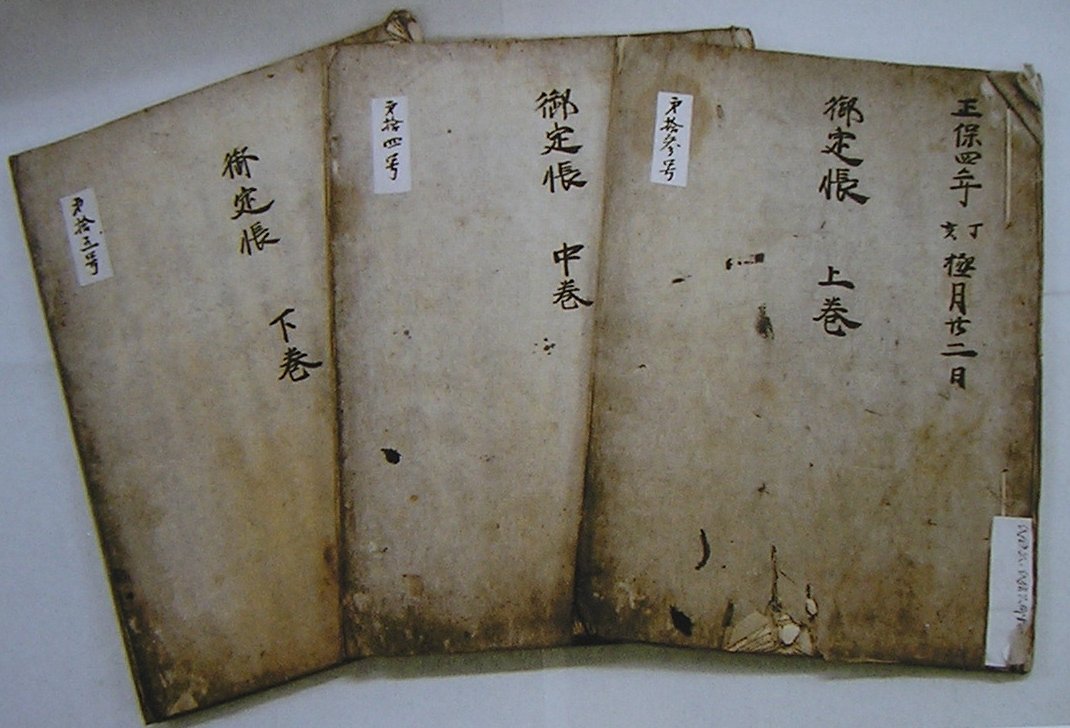 正保四年
丁亥
極月廿二日
御定帳 上巻
第拾参号
御定帳 中巻
第拾四号
御定帳 下巻
第拾五号